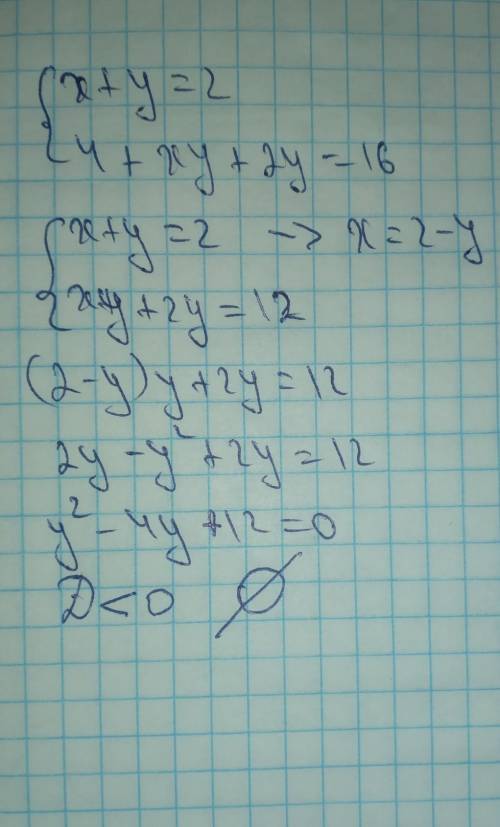 { x + y = 2
4 + xy + 2y = 16
{ x + y = 2 -> x = 2 - y
xy + 2y = 12
(2 - y) y + 2y = 12
2y - y² + 2y = 12
y² - 4y + 12 = 0
D < 0 Ø